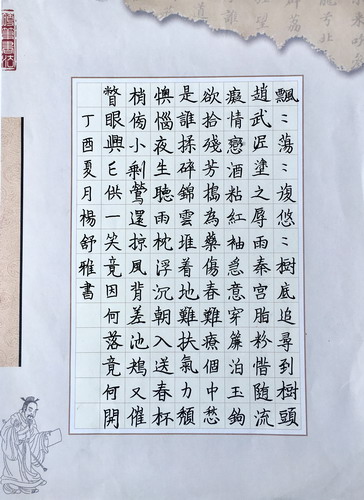 飄〻蕩〻復悠〻樹底追尋到樹頭
趙武泥塗之辱雨秦宮脂粉惜隨流
癡情戀酒粘紅袖急意穿簾泊玉鉤
欲拾殘芳搗為藥傷春難療個中愁
是誰揉碎錦雲堆着地難扶氣力頹
懊惱夜生聽雨枕浮沉朝入送春杯
梢傍小剩鶯還掠風背差池鳦又催
瞥眼興亡供一笑竟因何落竟何開
丁酉夏月楊舒雅書